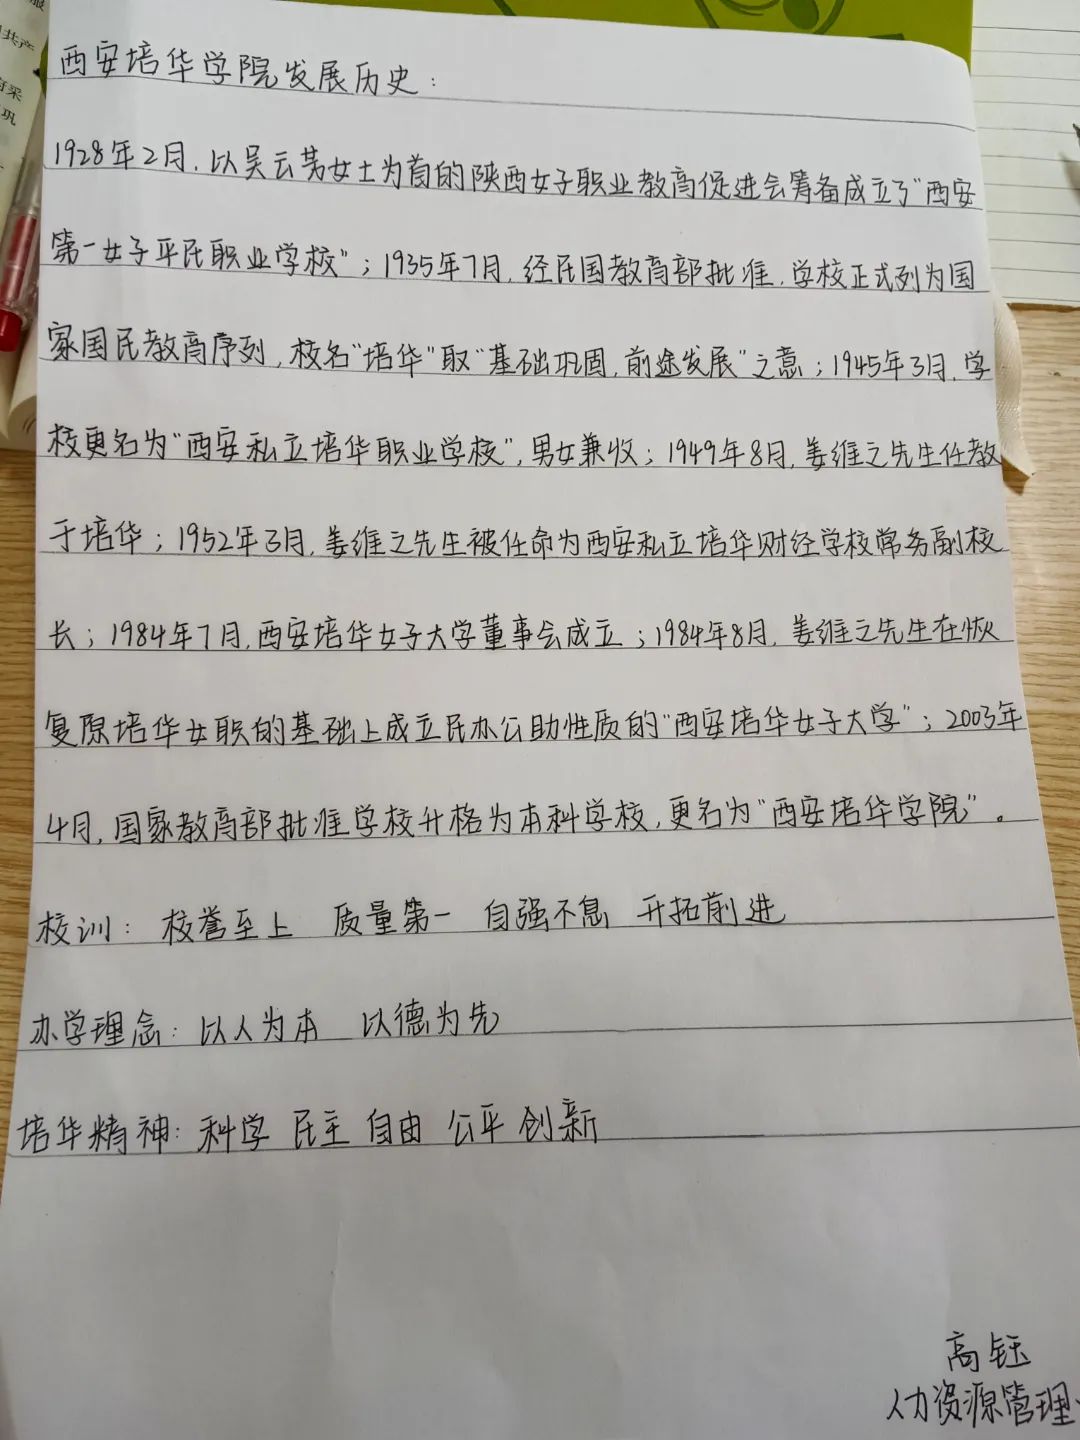 西安培华学院发展历史：
1928年2月，以吴云芳女士为首的陕西女子职业教育促进会筹备成立了"西安
第一女子平民职业学校"；1935年7月，经民国教育部批准，学校正式列为国
家国民教育序列，校名"培华"取"基础巩固，前途发展"之意；1945年3月，学
校更名为"西安私立培华职业学校"，男女兼收；1949年8月，姜维之先生任教
于培华；1952年3月，姜维之先生被任命为西安私立培华财经学校常务副校
长；1984年7月，西安培华女子大学董事会成立；1984年8月，姜维之先生在恢
复原培华女职的基础上成立民办公助性质的"西安培华女子大学"；2003年
4月，国家教育部批准学校升格为本科学校，更名为"西安培华学院"。
校训：校誉至上 质量第一 自强不息 开拓前进
办学理念：以人为本 以德为先
培华精神：科学 民主 自由 公平 创新
高钰
人力资源管理